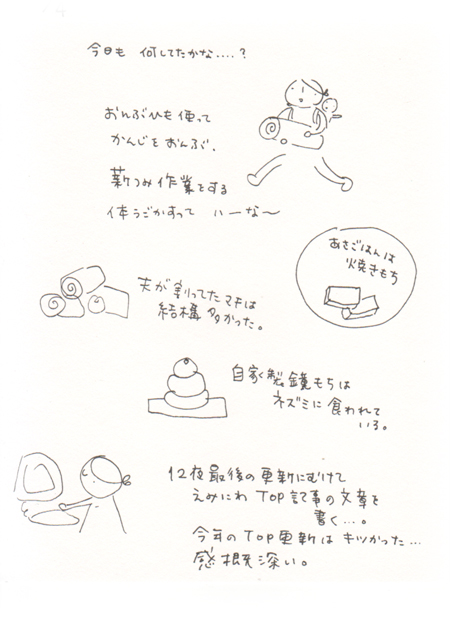 今日も 何してたかな....?
おんぶひも使って
かんじをおんぶ.
薪つみ作業をする
体うごかすって いーな〜
あさごはんは
焼きもち
夫が割ってたマキは
結構多かった。
自家製鏡もちは
ネズミに食われて
いる。
12夜最後の更新にむけて
えみにわTOP記事の文章を
書く...。
今年のTOP更新はキツかった...
感慨深い。